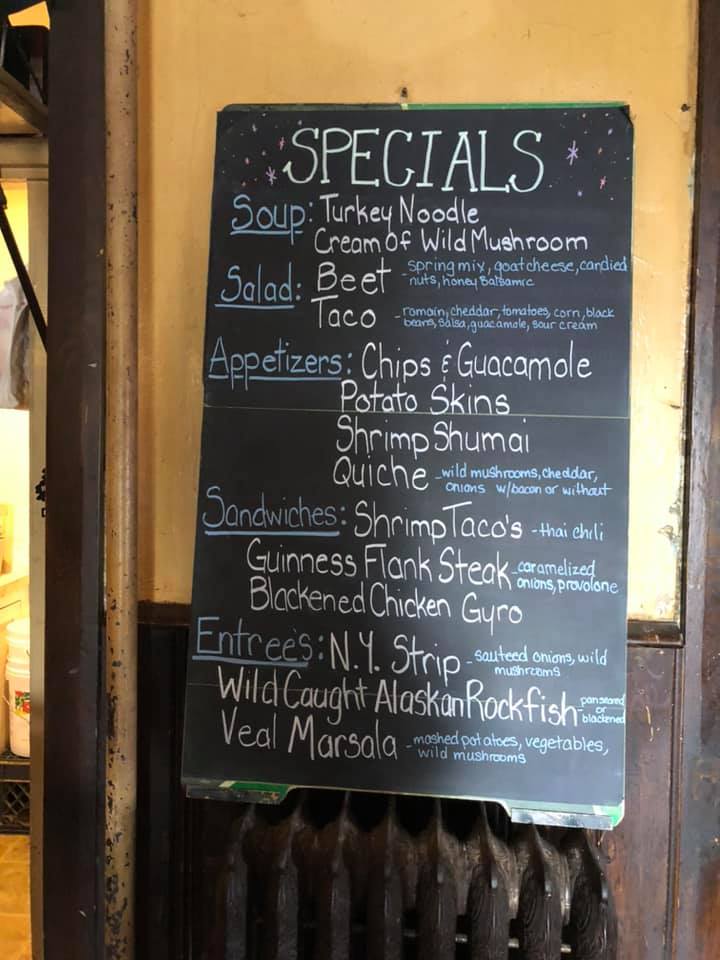 SPECIALS
Soup: Turkey Noodle
Cream Of Wild Mushroom
Salad: Beet - spring mix, goat cheese, candied
nuts, honey Balsamic
Taco - romain, cheddar, tomatoes, corn, black
beans, salsa, guacamole, sour cream
Appetizers: Chips & Guacamole
Potato Skins
Shrimp Shumai
Quiche - wild mushrooms, cheddar,
onions w/bacon or without
Sandwiches: Shrimp Taco's - thai chili
Guinness Flank Steak - caramelized
onions, provolone
Blackened Chicken Gyro
Entree's: N.Y. Strip - sauteed onions, wild
mushrooms
Wild Caught Alaskan Rockfish - pan seared
or
blackened
Veal Marsala - mashed potatoes, vegetables,
wild mushrooms